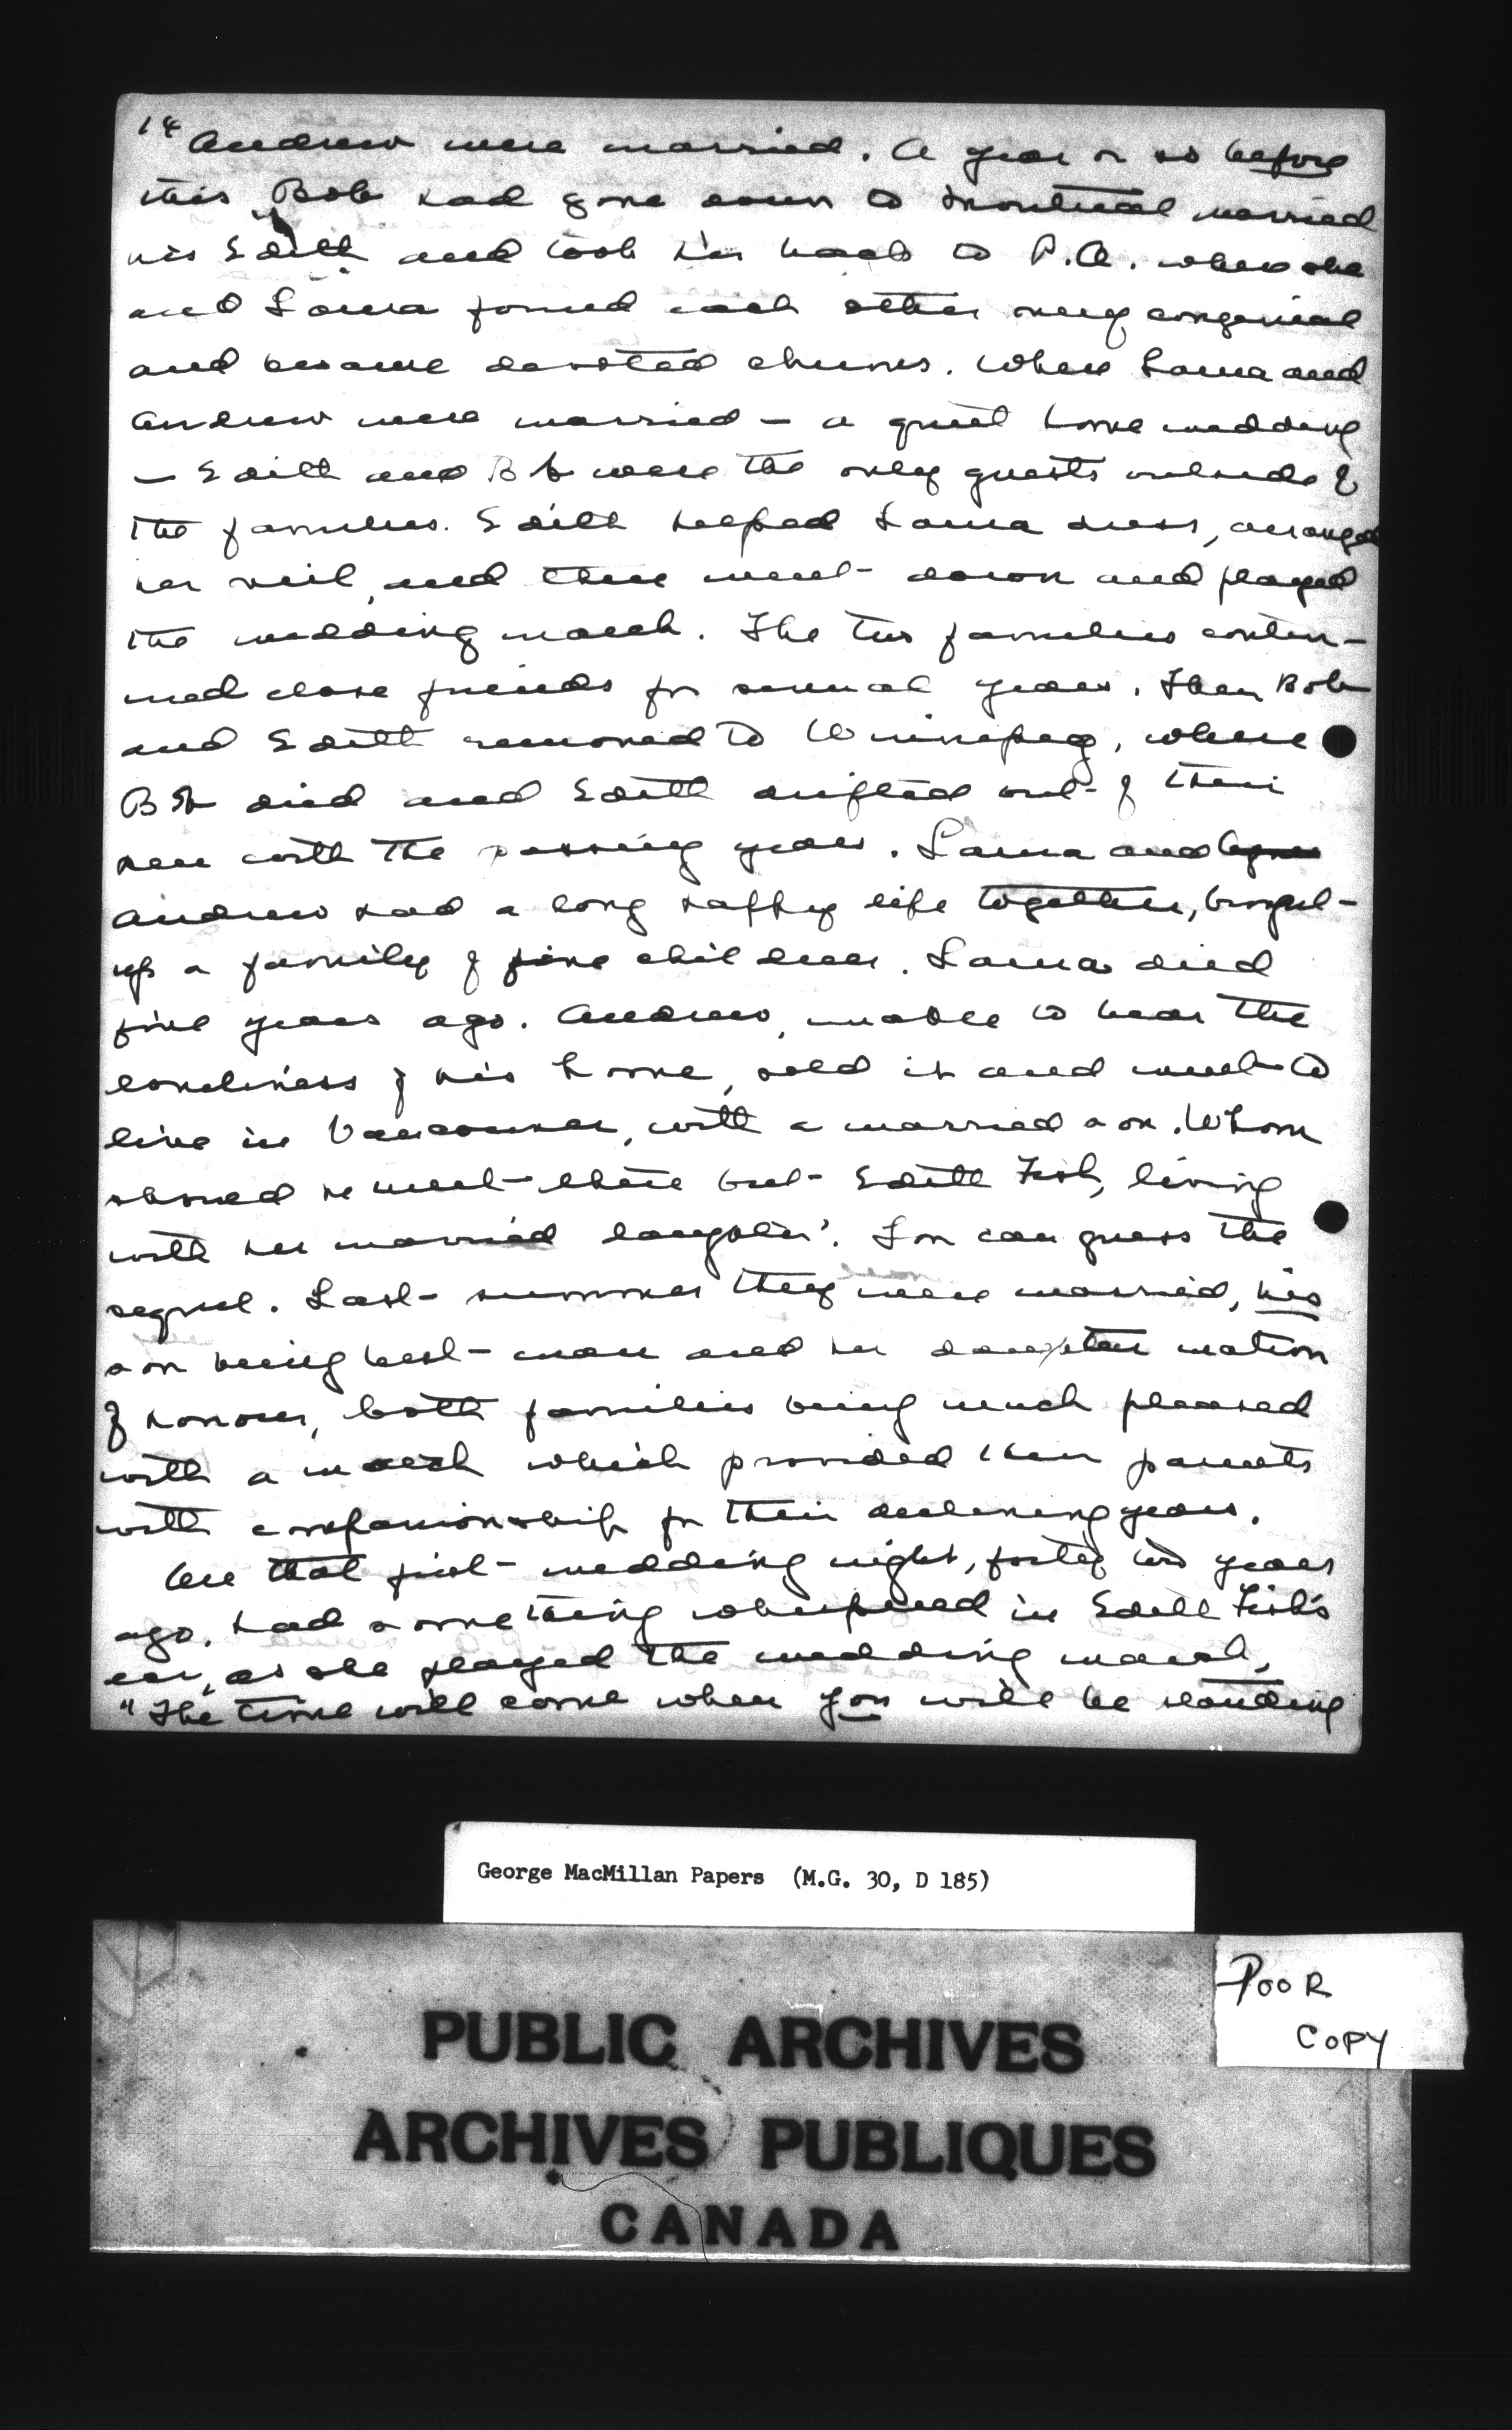 14 Andrew were married. A year or so before
this Bob had gone down to Montreal married
his Edith and took her back to P.A. where she
and Laura found each other very congenial
and became devoted chums. When Laura and
Andrew were married — a quiet home wedding
— Edith and Bob were the only guests outside of
the families. Edith helped Laura dress, arranged
her veil, and then went down and played
the wedding march. The two families contin-
ued close friends for several years. Then Bob
and Edith removed to Winnipeg, where
Bob died and Edith drifted out of their
ken with the passing years. Laura and
Andrew had a long happy life together, brought
up a family of fine children. Laura died
five years ago. Andrew, unable to bear the
loneliness of his home, sold it and went to
live in Vancouver, with a married son. Whom
should he meet there but Edith Fish, living
with her married daughter. You can guess the
sequel. Last summer they were married, his
son being best-man and her daughter matron
of honour, both families being much pleased
with a match which provided their parents
with companionship for their declining years.
On that first wedding night, forty two years
ago, had something whispered in Edith Fish's
ear, as she played the wedding march,
"The time will come when you will be standing
George MacMillan Papers (M.G. 30, D 185)
POOR
COPY
PUBLIC ARCHIVES
ARCHIVES PUBLIQUES
CANADA